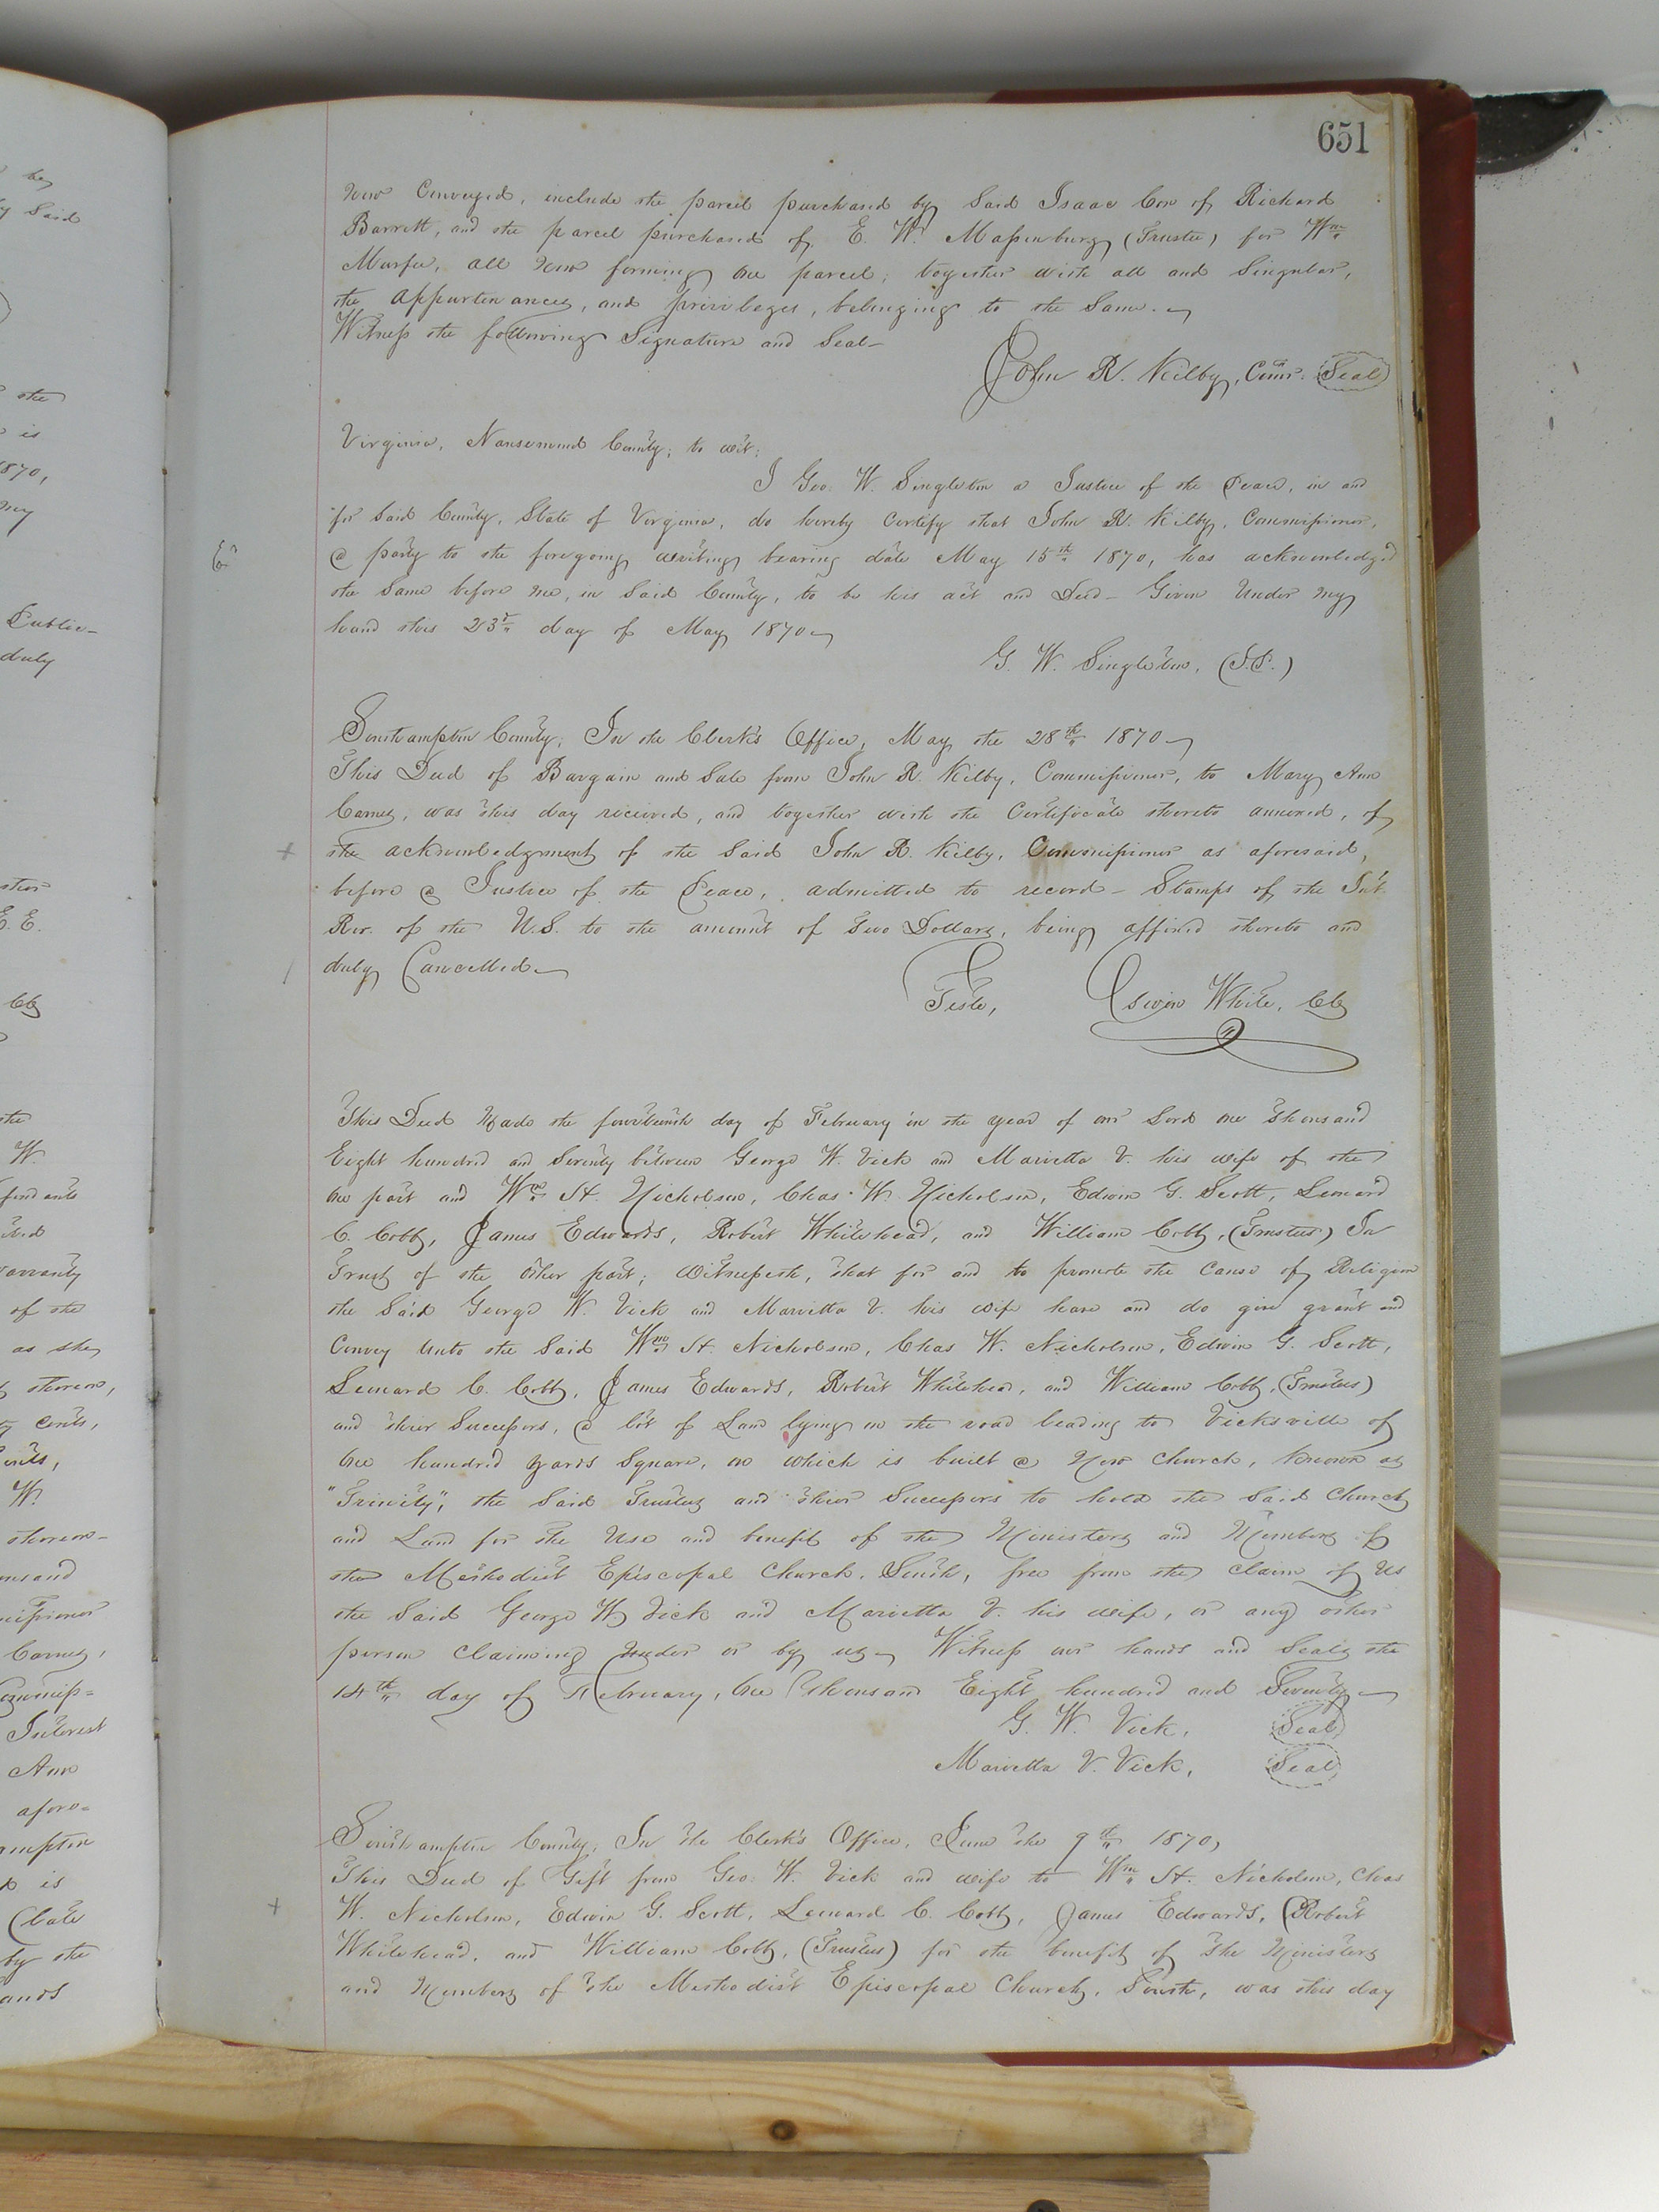 651
now Conveyed, include the parcel purchased by Said Isaac Con of Richard
Barrett, and the parcel purchased of E. W. Massenburg (Trustee) for Wm
Murfee, all now forming one parcel; together with all and Singular,
the appurtenances, and privileges, belonging to the Same.
Witness the following Signature and Seal-
John R. Kilby, Comr. Seal
Virginia, Nansemond County, to wit:
I Geo. W. Singleton a Justice of the Peace, in and
for Said County, State of Virginia, do hereby Certify that John R. Kilby, Commissioner,
a party to the foregoing writing bearing date May 15th 1870, has acknowledged
the Same before me, in Said County, to be his act and Deed- Given Under my
hand this 23d day of May 1870
G. W. Singleton, (J.P.)
Southampton County; In the Clerk's Office, May the 28th 1870
This Deed of Bargain and Sale from John R. Kilby, Commissioner, to Mary Ann
Carney, was this day received, and together with the Certificate thereto annexed, of
the acknowledgment of the Said John R. Kilby, Commissioner as aforesaid,
before a Justice of the Peace, admitted to record- Stamps of the Int.
Rev. of the U.S. to the amount of Two Dollars, being affixed thereto and
duly Cancelled
Teste, Edwin White, Clk
This Deed Made the fourteenth day of February in the year of our Lord one thousand
Eight hundred and Seventy between George W. Vick and Marietta V. his wife of the
one part and Wm H. Nicholson, Chas. W. Nicholson, Edwin G. Scott, Leonard
C. Cobb, James Edwards, Robert Whitehead, and William Cobb, (Trustees) In
Trust of the other part; Witnesseth, that for and to promote the Cause of Religion
the Said George W. Vick and Marietta V. his wife have and do give grant and
Convey Unto the Said Wm H. Nicholson, Chas W. Nicholson, Edwin G. Scott,
Leonard C. Cobb, James Edwards, Robert Whitehead, and William Cobb, (Trustees)
and their Successors, a lot of Land lying on the road leading to Vicksville of
One hundred yards Square, on which is built a New Church, Known as
"Trinity", the Said Trustees and their Successors to hold the Said Church
and Land for the Use and benefit of the Ministers and Members of
the Methodist Episcopal Church, South, free from the Claim of Us
the Said George W. Vick and Marietta V. his wife, or any other
person Claiming Under or by us Witness our hands and Seals the
14th day of February, One thousand Eight hundred and Seventy
G. W. Vick, Seal
Marietta V. Vick, Seal
Southampton County; In the Clerk's Office, June the 9th 1870,
This Deed of Gift from Geo. W. Vick and wife to Wm H. Nicholson, Chas
W. Nicholson, Edwin G. Scott, Leonard C. Cobb, James Edwards, Robert
Whitehead, and William Cobb, (Trustees) for the benefit of the Ministers
and Members of the Methodist Episcopal Church, South, was this day